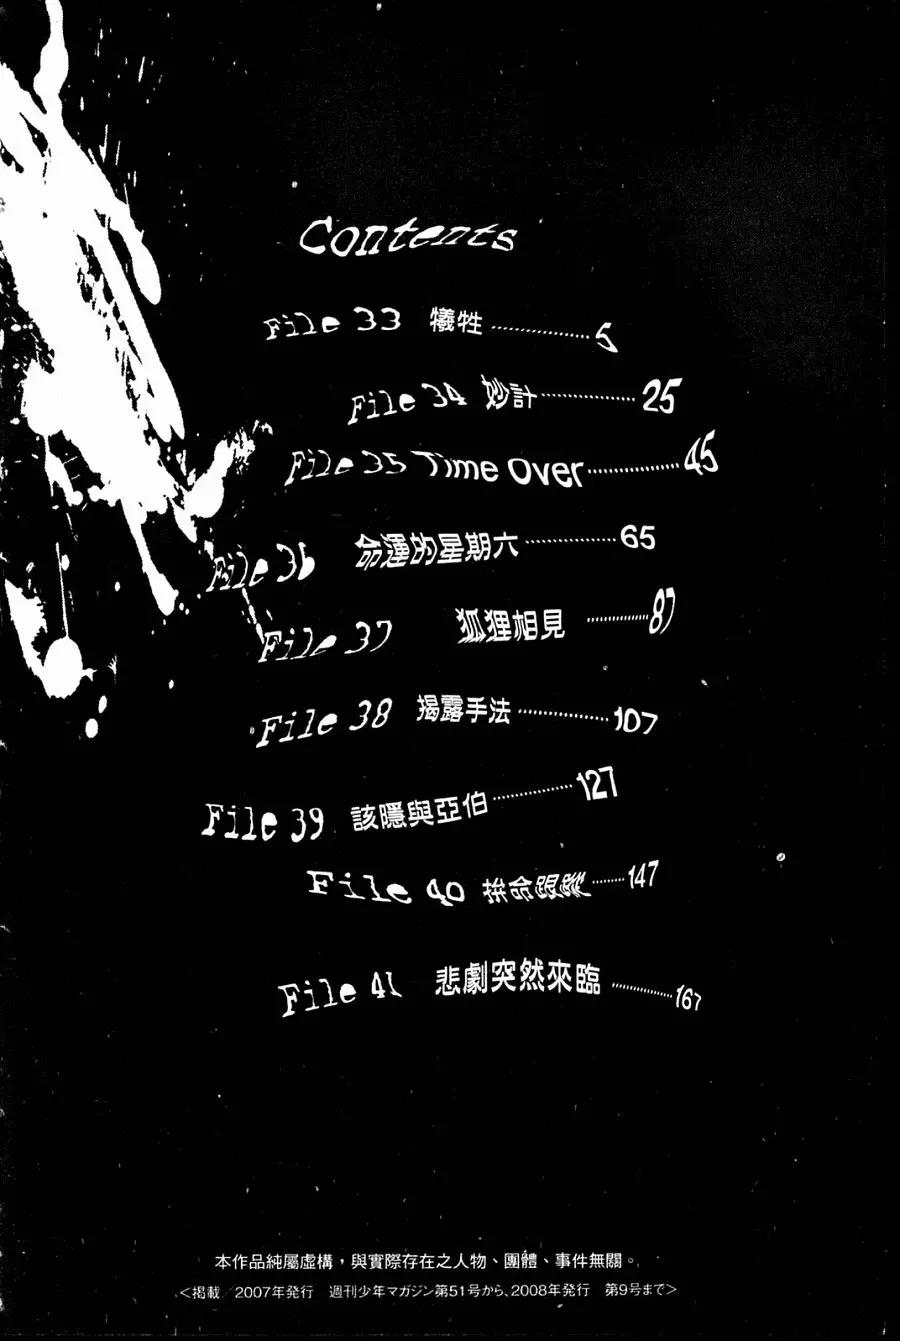 Contents
File 33 犧牲 5
File 34 妙計 25
File 35 Time Over 45
File 36 命運的星期六 65
File 37 狐狸相見 87
File 38 揭露手法 107
File 39 該隱與亞伯 127
File 40 拚命跟蹤 147
File 41 悲劇突然來臨 167
本作品純屬虛構，與實際存在之人物、團體、事件無關。
＜掲載／2007年発行　週刊少年マガジン第51号から、2008年発行　第9号まで＞